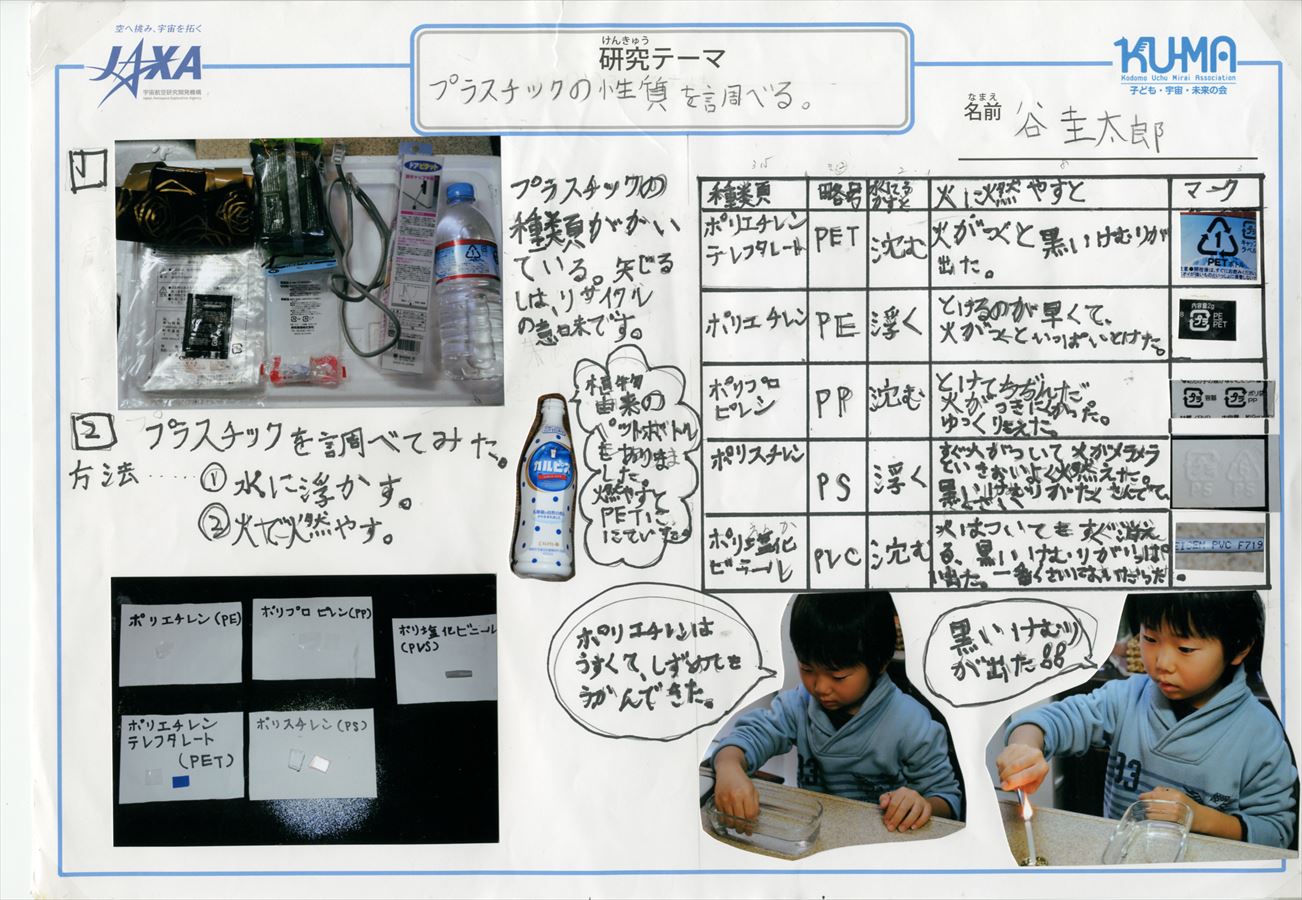 空へ挑み、宇宙を拓く
JAXA
宇宙航空研究開発機構
Japan Aerospace Exploration Agency
けんきゅう
研究テーマ
プラスチックの性質を調べる。
KU-MA
Kodomo Uchu Mirai Association
子ども・宇宙・未来の会
なまえ
名前
谷 圭太郎
1
プラスチックの
種類がかい
ている。矢じる
しは、リサイクル
の意味です。
2 プラスチックを調べてみた。
方法……①水に浮かす。
②火で燃やす。
植物
由来の
ペットボトル
もあります
した。
燃やすと
PETに
にていました
カルピス
種類 略号 火に燃やすと マーク
ポリエチレン
テレフタレート PET 沈む 火がつくと黒いけむりが
出た。
1
PET
ポリエチレン PE 浮く とけるのが早くて、
火がつくといっぱいとけた。
内容量2g
プラ PE
PET
ポリプロ
ピレン PP 沈む とけてちぢんだ
火がつきにくかった。
ゆっくりもえた。
プラ 容器 プラ PP
ポリスチレン
PS 浮く すぐ火がついて火がメラメラ
といきおいよく燃えた。
PS PS
えんか
ポリ塩化
ビニール PVC 沈む 火はついてもすぐ消え
る、黒いけむりがいっぱい
出た。一番くさいにおいだった。
PVC F719
ポリエチレン(PE)
ポリプロピレン(PP)
ポリ塩化ビニール
(PVS)
ポリエチレン
テレフタレート
(PET)
ポリスチレン(PS)
ポリエチレンは
うすくて、しずめても
うかんできた。
黒いけむり
が出た